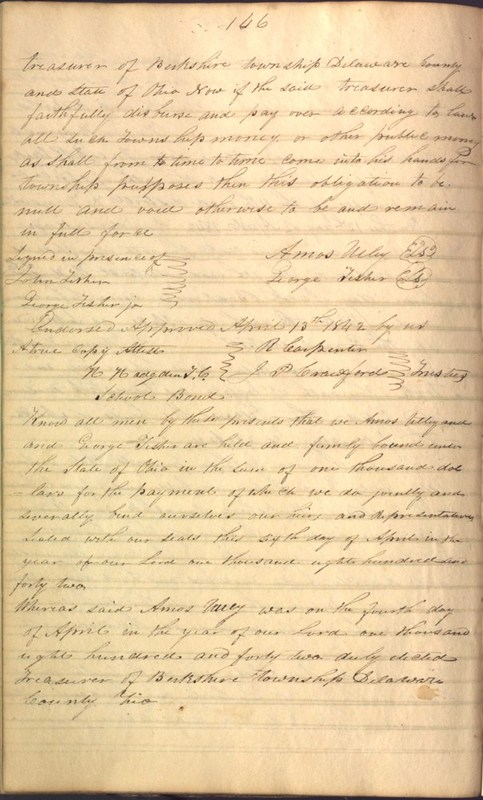 146
treasurer of Berkshire township Delaware County
and State of Ohio Now if the said treasurer shall
faithfully disburse and pay over according to law
all such Township money or other public money
as shall from to time to time come into his hands for
township purposes then this obligation to be
null and void otherwise to be and remain
in full force
Signed in presence of Amos Utley
John Fisher George Fisher
George Fisher jr
Endorsed Approved April 13th 1842 by us
A true Copy Attest R Carpenter
T.C. J P Crawford Trustees
School Bond
Know all men by these presents that we Amos Utley and
and George Fisher are held and firmly bound unto
the State of Ohio in the sum of one thousand dol
-lars for the payment of which we do jointly and
severally bind ourselves our heirs and Representatives
Sealed with our seals this sixth day of April in the
year of our Lord one thousand eight hundred and
forty two
Whereas said Amos Utley was on the fourth day
of April in the year of our Lord one thousand
eight hundred and forty two duly elected
treasurer of Berkshire township Delaware
County Ohio